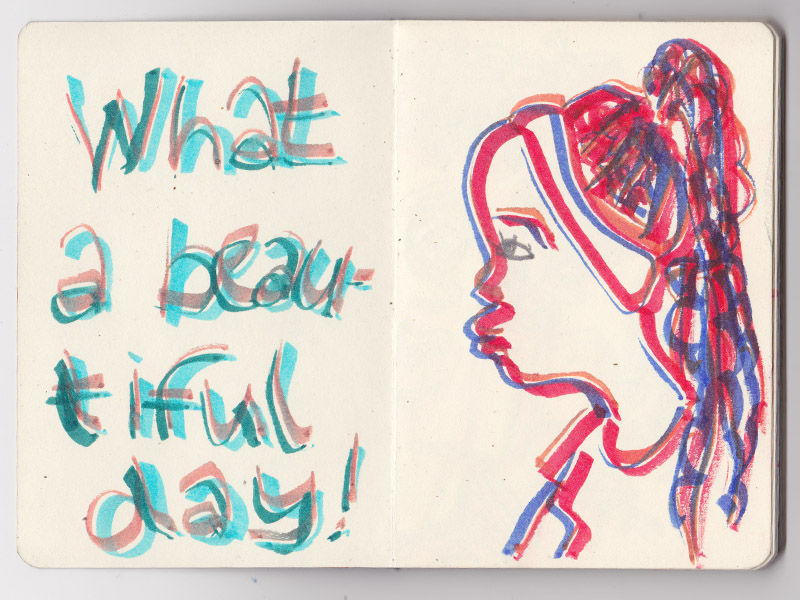 What
a beau-
tiful
day!